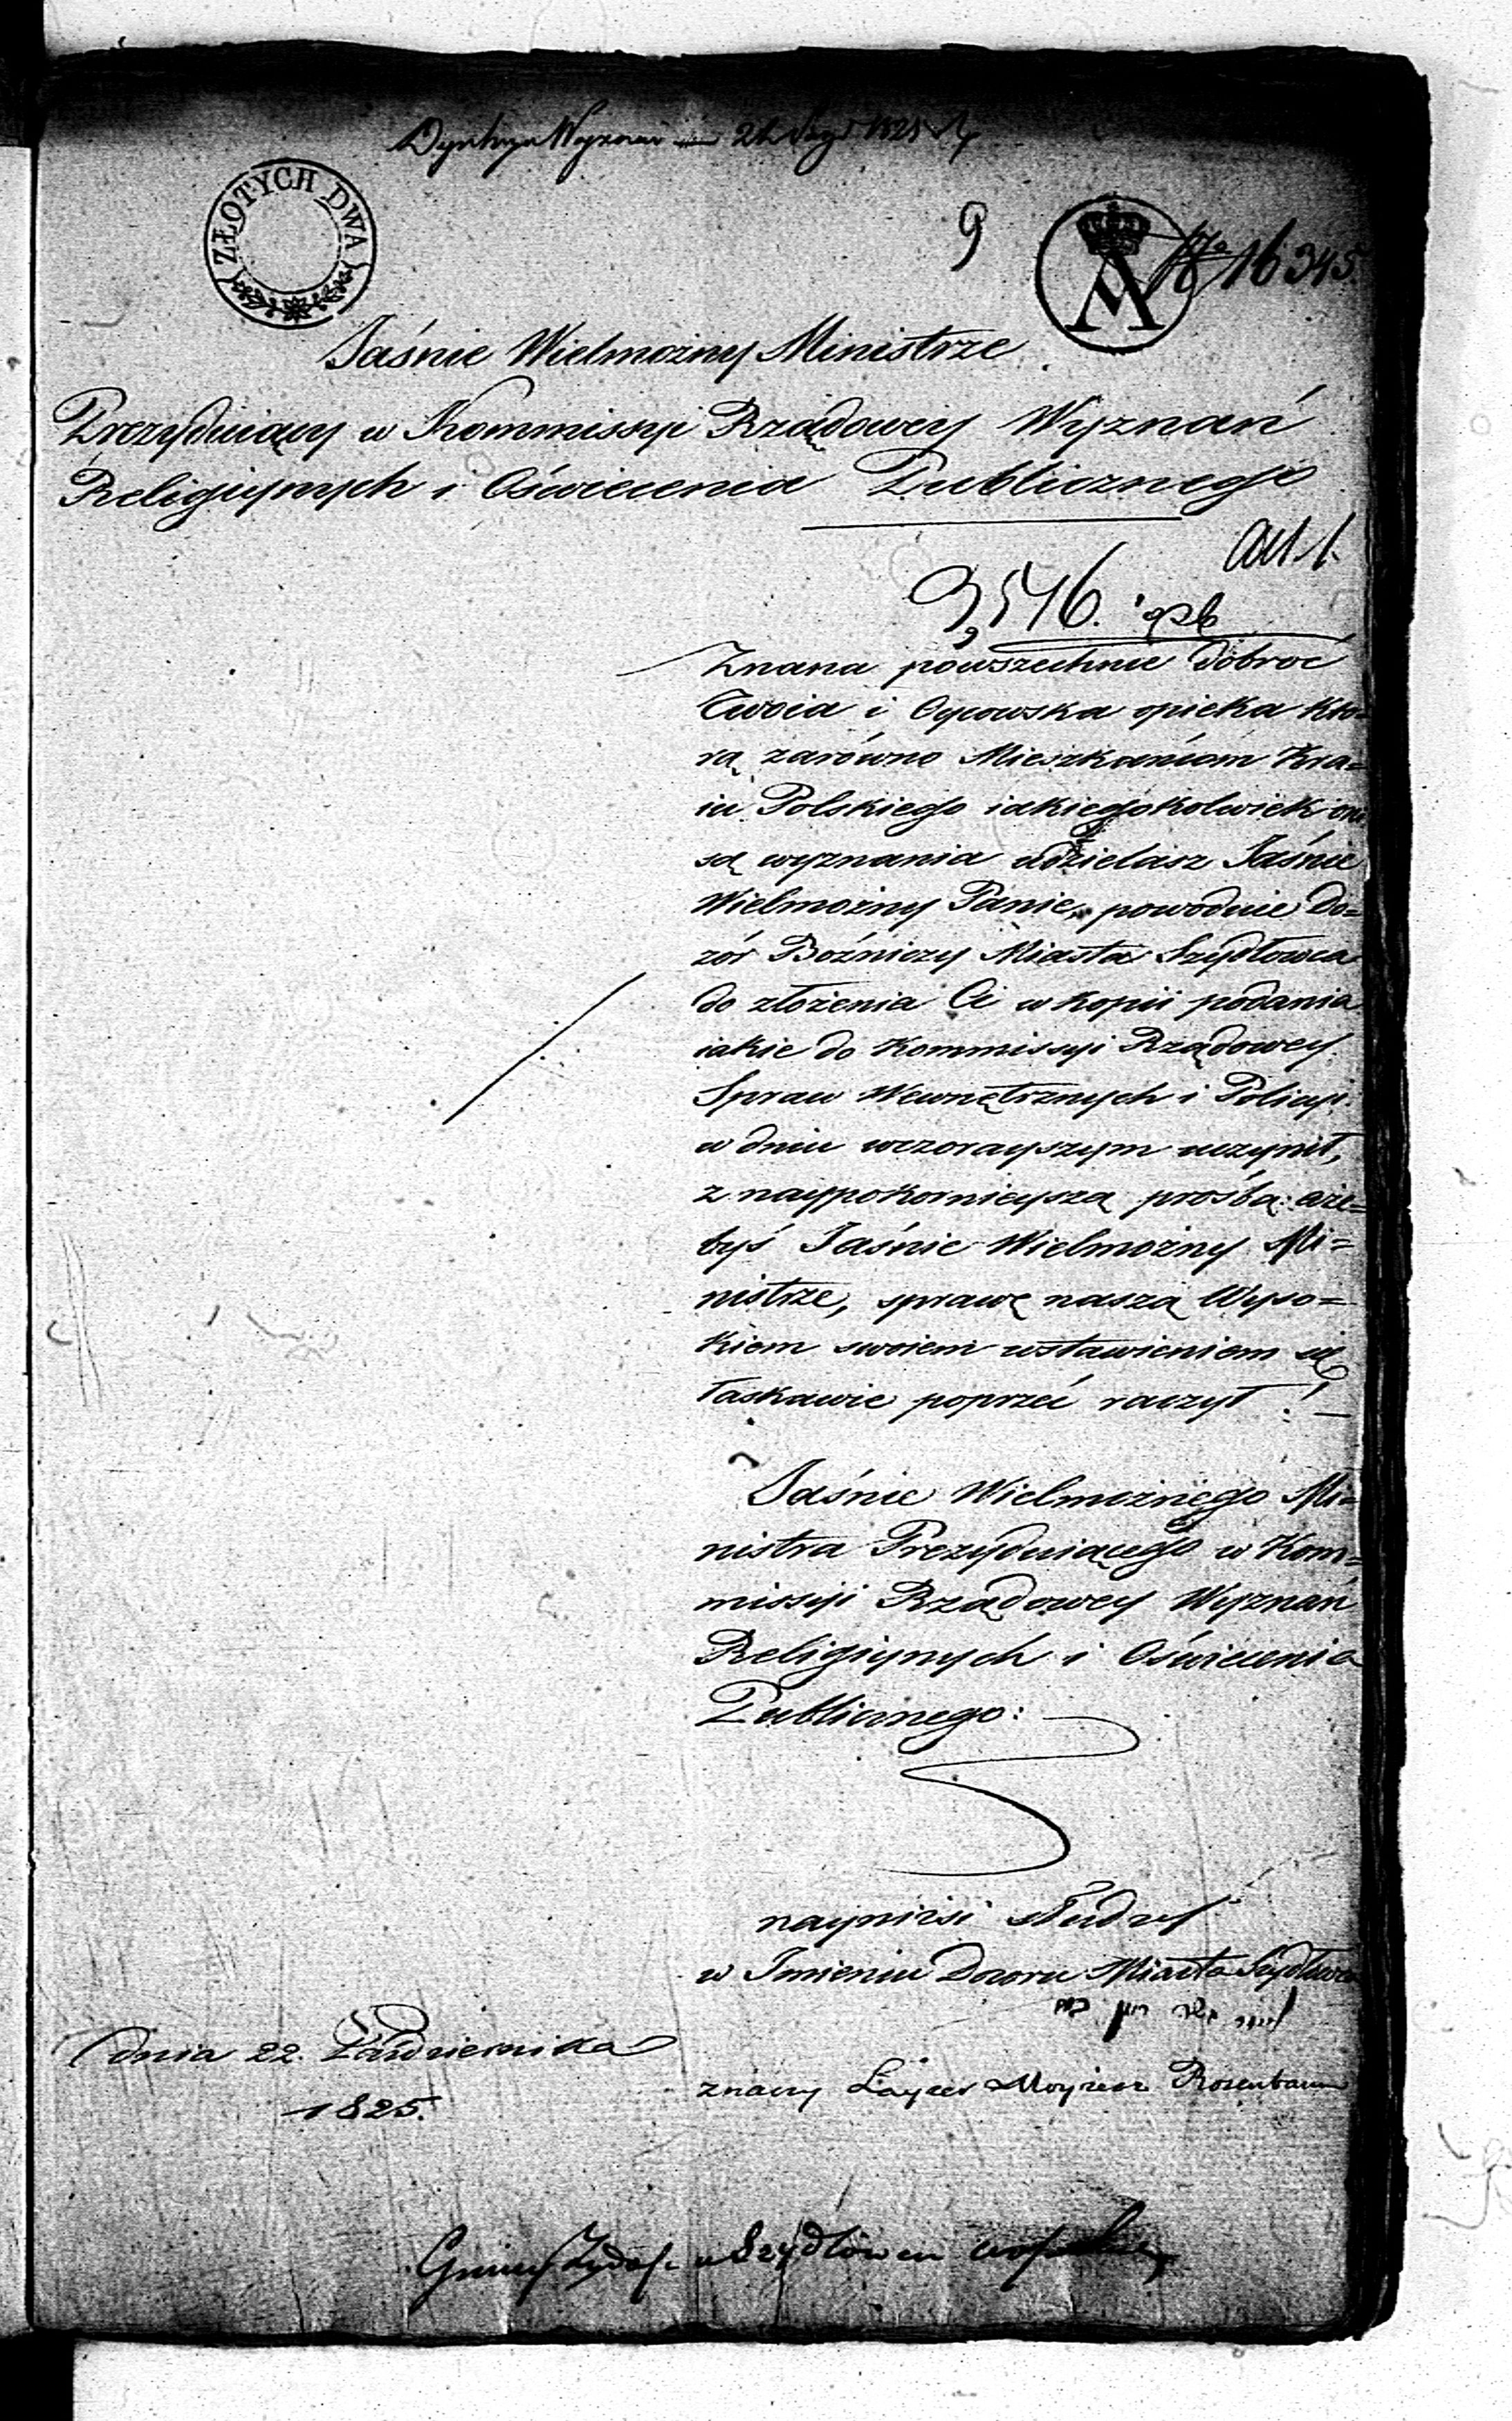 ZŁOTYCH DWA
9
A
16345
Jaśnie Wielmożny Ministrze
Prezyduiący w Kommissyi Rządowey Wyznań
Religiynych i Oświecenia Publicznego
3,546.
Znana powszechnie dobroć
Twoia i Oycowska opieka któ-
rą zarówno Mieszkańcom Kra=
iu Polskiego iakiegokolwiek oni
są wyznania udzielasz Jaśnie
Wielmożny Panie, powoduie Do=
zór Bożniczy Miasta Szydłowca
do złożenia Ci w kopii podania
iakie do Kommissyi Rządowey
Spraw Wewnętrznych i Policyi
w dniu wczorayszym uczynił,
z naypokornieyszą prośbą: aże=
byś Jaśnie Wielmożny Mi=
nistrze, sprawę naszą Wyso=
kiem swoiem wstawieniem się
łaskawie poprzeć raczył!
Jaśnie Wielmożnego Mi=
nistra Prezyduiącego w Kom=
missyi Rządowey Wyznań
Religiynych i Oświecenia
Publicznego:
nayniżsi słudzy
w Imieniu Dozoru Miasta Szydłowca
dnia 22. Października
1825.
znaczy Layzer Moyżesz Rosenbaum
Gminy Żydows. w Szydłowcu